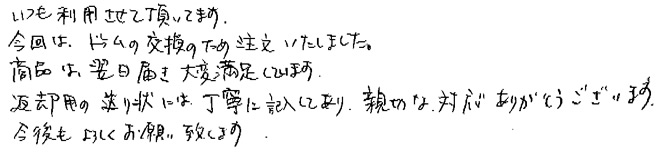 いつも利用させて頂いてます.
今回は、ドラムの交換のため注文いたしました。
商品は、翌日届き大変満足しています.
返却用の送り状には、丁寧に記入してあり、親切な対応ありがとうございます.
今後もよろしくお願い致します.